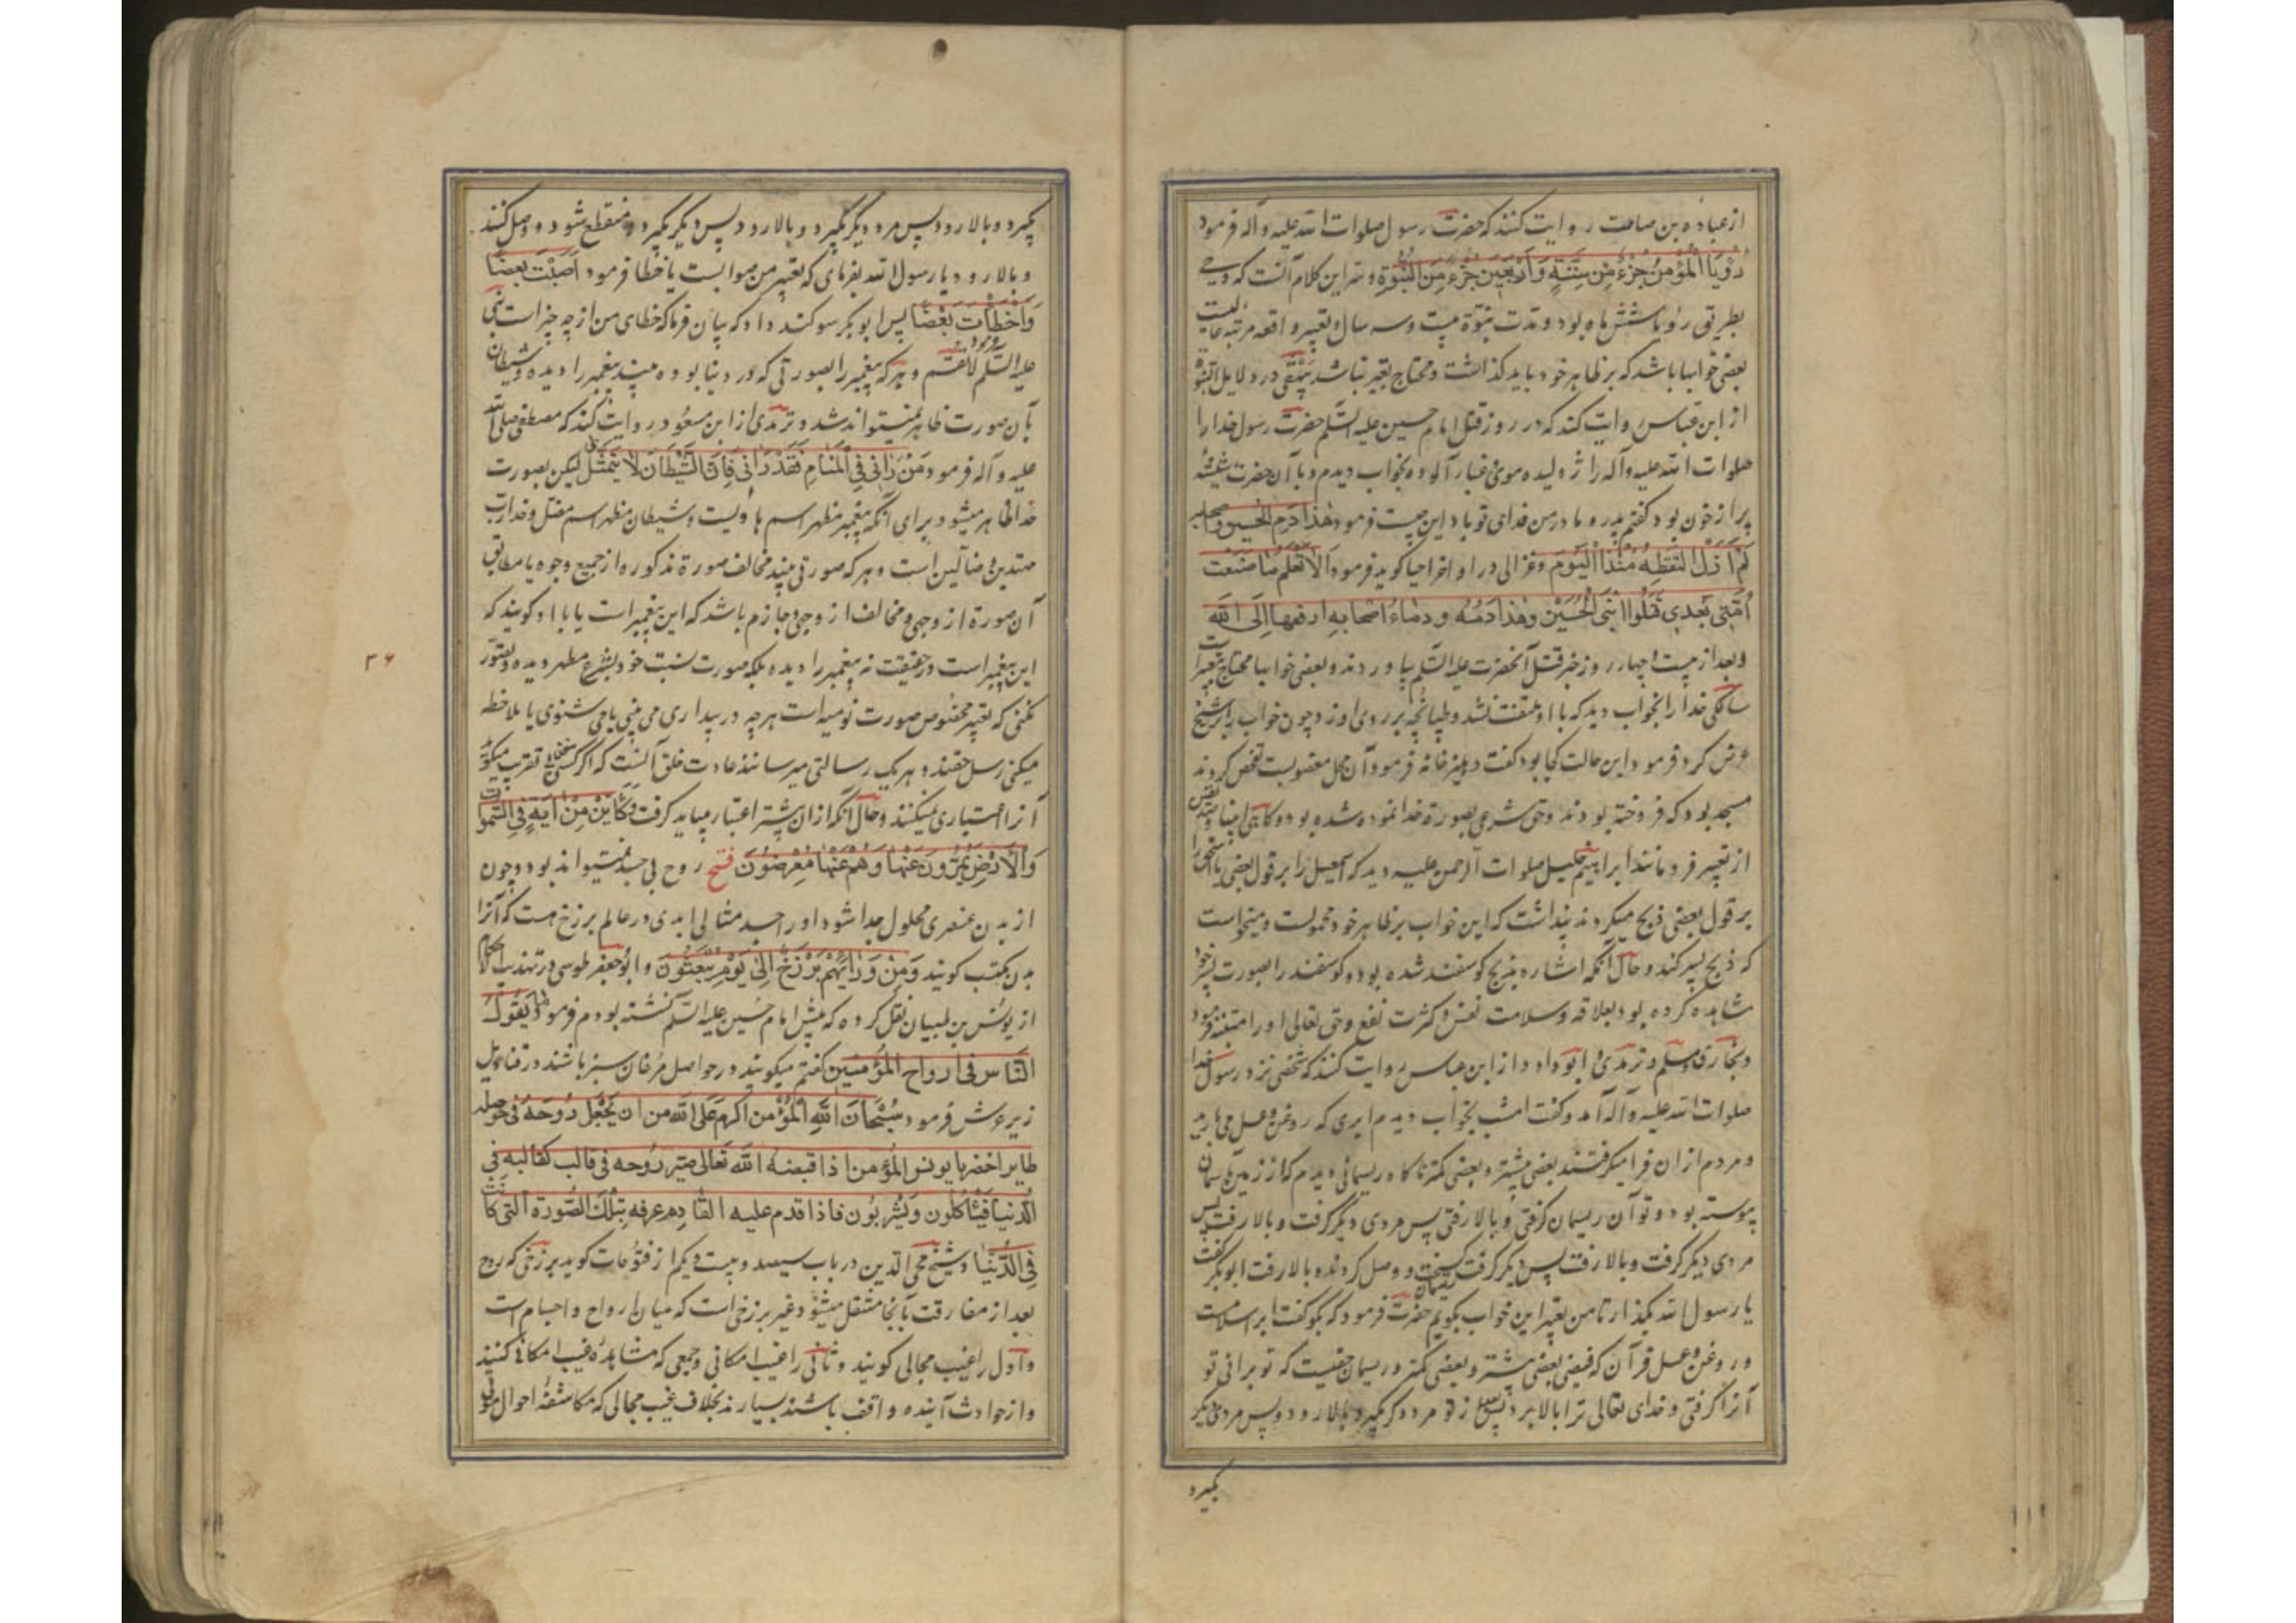 از عباده بن صامت روایت کنند که حضرت رسول صلوات الله علیه و آله فرمود
رُؤیَا المُؤمِنِ جُزءٌ مِن سِتَّةٍ وَ اَربَعینَ جُزءٍ مِنَ النُّبُوَّةِ و سر این کلام آنست که وحی
بطریق رؤیا شش ماه بود و مدت نبوّة بیست و سه سال و تعبیر واقعه مرتبه عالیست
بعضی خوابها باشد که بر ظاهر خود باید گذاشت و محتاج تعبیر نباشد بیهقی در دلایل النبوة
از ابن عباس روایت کند که در روز قتل امام حسین علیه السّلم حضرت رسول خدا را
صلوات الله علیه و آله ژولیده موی غبار آلوده بخواب دیدم و با آن حضرت شیشه
پر از خون بود گفتم پدر و مادر من فدای تو باد این چیست فرمود هذا دم الحسین و اصحابه
لَم اَزَل اَلتَقِطُهُ مُنذُ الیَوم و غزالی در اواخر احیا گوید فرمود اَلا تَعلَم مَا صَنَعَت
اُمَّتی بَعدی قَتَلُوا ابنِیَ الحُسَین وَ هذا دَمُهُ و دماءُ اصحابه ارفعها اِلَی الله
و بعد از بیست و چهار روز خبر قتل آنحضرت علیه السّلم بیاوردند و بعضی خوابها محتاج تعبیر است
سالکی خدا را بخواب دید که با او ملتفت نشد و طپانچه بر روی او زد چون خواب را بر شیخ
عرض کرد فرمود این حالت کجا بود گفت دهلیز خانه فرمود آن محل مغصوبست تفحص کردند
مسجد بود که فروخته بودند و حق شرعی بصورة خدا نموده شده بود و گاهی انبیا و
از تعبیر فرو مانند ابراهیم خلیل صلوات الرحمن علیه دید که اسمعیل را بر قول بعضی یا اسحق را
بر قول بعضی ذبح میکرد پنداشت که این خواب بر ظاهر خود محمولست و میخواست
که ذبح پسر کند و حال آنکه اشاره بذبح گوسفند شده بود و گوسفند را بصورت پسر خود
مشاهده کرده بود بعلاقه وسلامت نفس و کثرت نفع و حق تعالی او را متنبه فرمود
و بخاری و مسلم و ترمذی و ابو داود از ابن عباس روایت کنند که شخصی نزد رسول خدا
صلوات الله علیه و آله آمد و گفت امشب بخواب دیدم ابری که روغن و عسل می بارید
و مردم از آن فرا میگرفتند بعضی بیشتر و بعضی کمتر ناگاه ریسمانی دیدم که از زمین بآسمان
پیوسته بود و تو آن ریسمان گرفتی و بالا رفتی پس مردی دیگر گرفت و بالا رفت پس
مردی دیگر گرفت و بالا رفت پس دیگر گرفت ریسمان بگسیخت و وصل کردند و بالا رفت ابو بکر گفت
یا رسول الله بگذار تا من تعبیر این خواب بگویم حضرت فرمود که بگو گفت ابر اسلامست
و روغن و عسل قرآن که فیض بعضی بیشتر و بعضی کمتر و ریسمان حقیست که تو بر آنی تو
آنرا گرفتی و خدای تعالی ترا بالا برد پس بعد از تو مرد دیگر بگیرد و بالا رود و پس مردی دیگر
بگیرد
بگیرد و بالا رود پس مرد دیگر بگیرد و بالا رود پس دیگر بگیرد و منقطع شود و وصل کنند
و بالا رود یا رسول الله بفرمای که تعبیر من صوابست یا خطا فرمود اَصَبتَ بَعضًا
وَ اَخطَأتَ بَعضًا پس ابو بکر سوگند داد که بیان فرما که خطای من از چه چیز است نبی
علیه السّلم فرمود لا تُقسِم و هر که پیغمبر را بصورتی که در دنیا بوده بیند پیغمبر را دیده و شیطان
بآن صورت ظاهر نمیتواند شد و ترمذی از ابن مسعود روایت کند که مصطفی صلی الله
علیه و آله فرمود مَن رَانی فِی المَنامِ فَقَد رَانی فَاِنَّ الشَّیطَانَ لا یَتَمَثَّلُ بی لیکن بصورت
خدا ظاهر میشود برای آنکه پیغمبر مظهر اسم هادیست و شیطان مظهر اسم مضل و خدا رب
مهتدین و ضالّین است و هر که صورتی بیند مخالف صورة مذکوره از جمیع وجوه یا مطابق
آن صورة از وجهی و مخالف از وجهی و جازم باشد که این پیغمبر است یا با او گویند که
این پیغمبر است در حقیقت نه پیغمبر را دیده بلکه صورت نسبت خود بشرع مطهر دیده و تصوّر
نکنی که تعبیر مخصوص صورت نومیه است هر چه در بیداری می بینی یا می شنوی یا ملاحظه
میکنی رسل حقند و هر یک رسالتی میرسانند عادت خلق آنست که اگر کسی سخنی بتقریب میگوید
آنرا اعتباری نمیکنند و حال آنکه از آن بیشتر اعتبار میباید گرفت وَ کَاَیِّن مِن ایَةٍ فِی السَّمواتِ
وَ الاَرضِ یَمُرُّونَ عَنها وَ هُم عَنها مُعرِضُونَ فتح روح بی جسد نمیتواند بود و چون
از بدن عنصری محلول جدا شود او را جسد مثالی ابدی در عالم برزخ هست که آنرا
بدن مکتسب گویند وَ مِن وَرَائِهِم بَرزَخٌ اِلی یَومِ یُبعَثُونَ و ابو جعفر طوسی در تهذیب الاحکام
از یونس بن ظبیان نقل کرده که پیش امام حسین علیه السّلم نشسته بودم فرمود ما یَقُولُ
النّاس فی ارواح المُؤمنین گفتم میگویند در حواصل مرغان سبز باشند در قنادیل
زیر عرش فرمود سُبحَانَ اللهِ المُؤمِن اکرم عَلَی الله من ان یَجعَل رُوحَهُ فی حوصلة
طایر اخضر یا یونس المُؤمن اذا قبضه الله تعالی صیّر رُوحه فی قالب کقالبه فی
الدنیا فَیَاکُلُون وَ یَشرَبُون فاذا قدم علیه القادم عرفه بِتِلکَ الصُّورة التی کانَت
فِی الدُّنیَا و شیخ محی الدین در باب سیصد و بیست و یکم از فتوحات گوید برزخی که روح
بعد از مفارقت بآنجا منتقل میشود غیر برزخی است که میان ارواح و اجسام است
و اول را غیب محالی گویند و ثانی را غیب امکانی و جمعی که مشاهده غیب امکانی کنند
و از حوادث آینده واقف باشند بسیارند بخلاف غیب محالی که مکاشفهٔ احوال موتی
۳۶